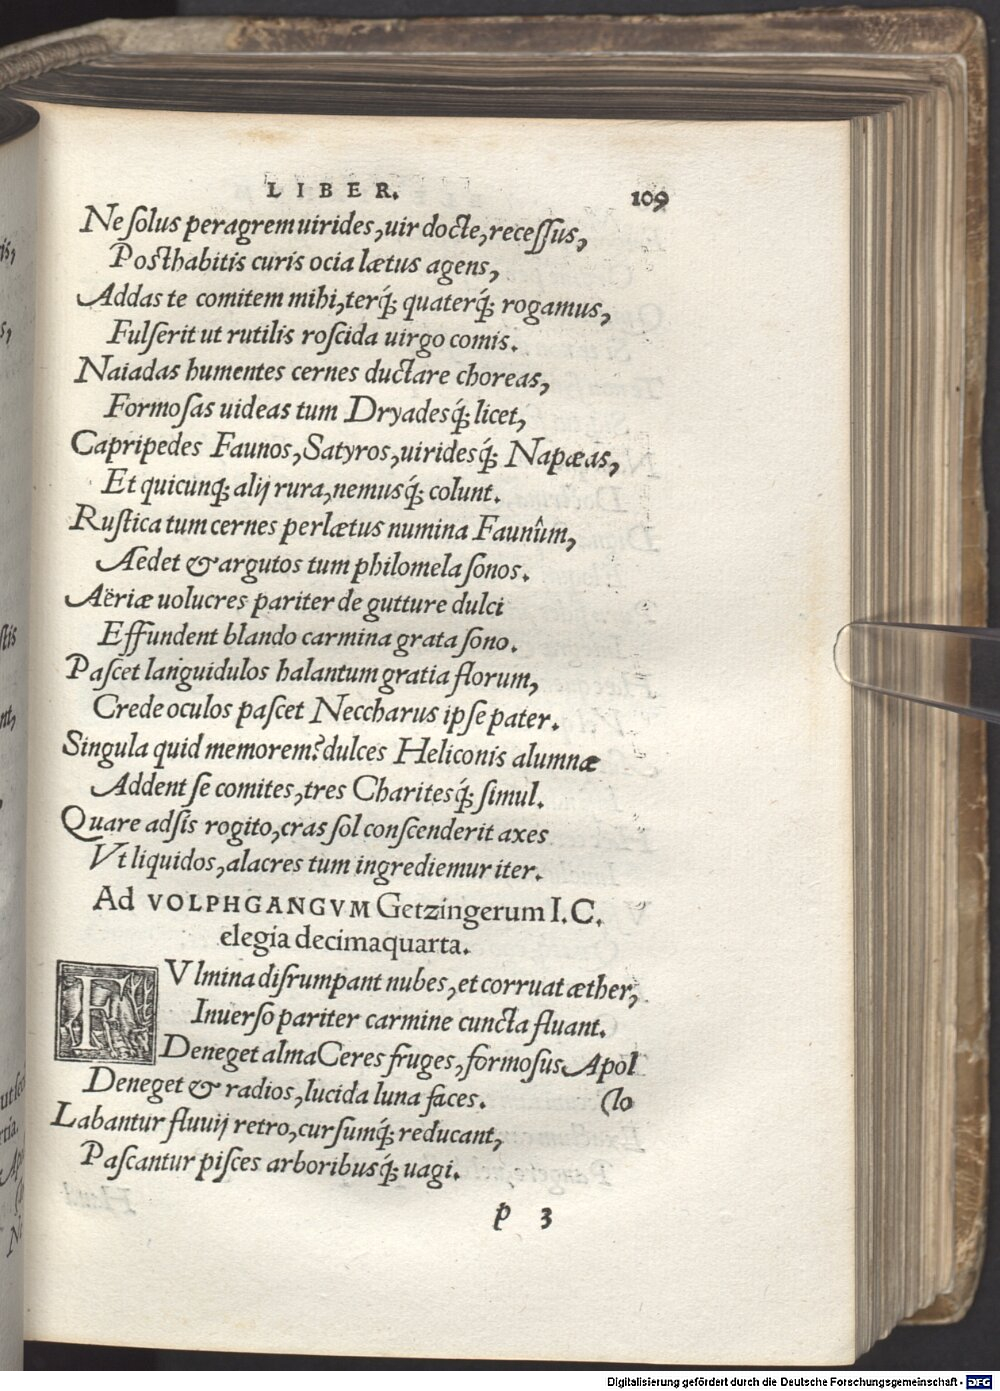 LIBER. 109
Ne ſolus peragrem uirides, uir docte, receſſus,
Poſthabitis curis ocia lætus agens,
Addas te comitem mihi, terq́; quaterq́; rogamus,
Fulſerit ut rutilis roſcida uirgo comis.
Naiadas humentes cernes ductare choreas,
Formoſas uideas tum Dryadesq́; licet,
Capripedes Faunos, Satyros, uiridesq́; Napæas,
Et quicunq; alij rura, nemusq́; colunt.
Ruſtica tum cernes perlætus numina Faunûm,
Ædet & argutos tum philomela ſonos.
Aëriæ uolucres pariter de gutture dulci
Effundent blando carmina grata ſono.
Paſcet languidulos halantum gratia florum,
Crede oculos paſcet Neccharus ipſe pater.
Singula quid memorem? dulces Heliconis alumnæ
Addent ſe comites, tres Charitesq́; ſimul.
Quare adſis rogito, cras ſol conſcenderit axes
Vt liquidos, alacres tum ingrediemur iter.
Ad VOLPHGANGVM Getzingerum I.C.
elegia decimaquarta.
FVlmina diſrumpant nubes, et corruat æther,
Inuerſo pariter carmine cuncta fluant.
Deneget alma Ceres fruges, formoſus Apol
Deneget & radios, lucida luna faces. (lo
Labantur fluuij retro, curſumq́; reducant,
Paſcantur piſces arboribusq́; uagi.
p 3
Digitalisierung gefördert durch die Deutsche Forschungsgemeinschaft - DFG